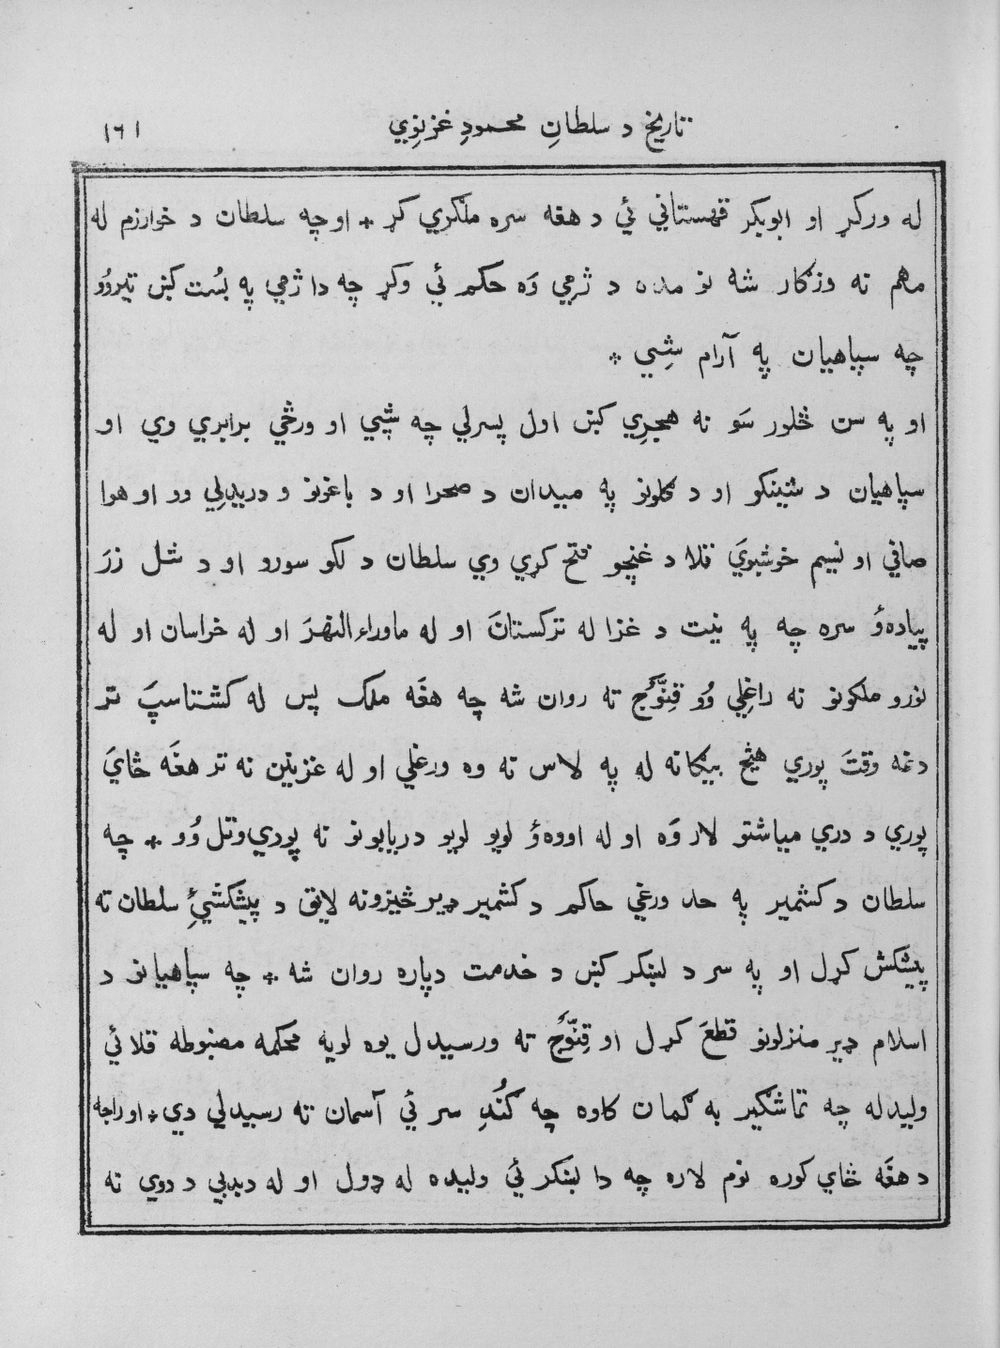 تاریخ د سلطانِ محمودِ غزنوِي ١٦١
له ورکړ او ابوبکر قهستاني ئي د هغه سره ملګري کړ * او چه سلطان د خوارزم له
مهم نه وزګار شه نو مده د ژمي وَه حکم ئي وکړ چه دا ژمي په بُست کښ تیروُو
چه سپاهیان په آرام شِي *
او په سن څلور سَو نه هجرِي کښ اول پسرلي چه شپي او ورځي برابري وي او
سپاهیان د شینکو او د ګلونو په میدان د صحرا او د باغونو و دریدلِي وو او هوا
صافي او نسیم خوشبوَي قلا د غنچو فتح کړي وي سلطان د لکو سورو او د شل زرَ
پیاده‌ؤ سره چه په نیت د غزا له ترکستانَ او له ماوراءالنهرَ او له خراسان او له
نورو ملکونو نه راغِلِي وُو قِنَّوُج ته روان شه چه هغَه ملک پس له کشتاسپَ تر
دغه وقتَ پوري هیڅ بیګانه له په لاس نه وه ورغلي او له غزنین نه تر هغَه ځايَ
پوري د دري میاشتو لار وَه او له اووه‌ؤ لویو لویو دریابونو نه پورِي وتل وُو * چه
سلطان د کشمیر په حد ورغي حاکم د کشمیر ډیر څیزونه لایق د پیشکشیِٔ سلطان ته
پیشکش کړل او په سر د لښکر کښ د خدمت دپاره روان شه * چه سپاهیانو د
اسلام ډیر منزلونو قطعَ کړل او قِنَّوُج ته ورسیدل یوه لویه محکمه مضبوطه قلا ئي
ولیدله چه تماشګیر به ګمان کاوه چه کُنُدِ سر ئي آسمان ته رسیدلي دي * او راجه
د هغَه ځاي کوره نوم لاره چه دا لښکر ئي ولیده له ډول او له دبدبي د دوي نه